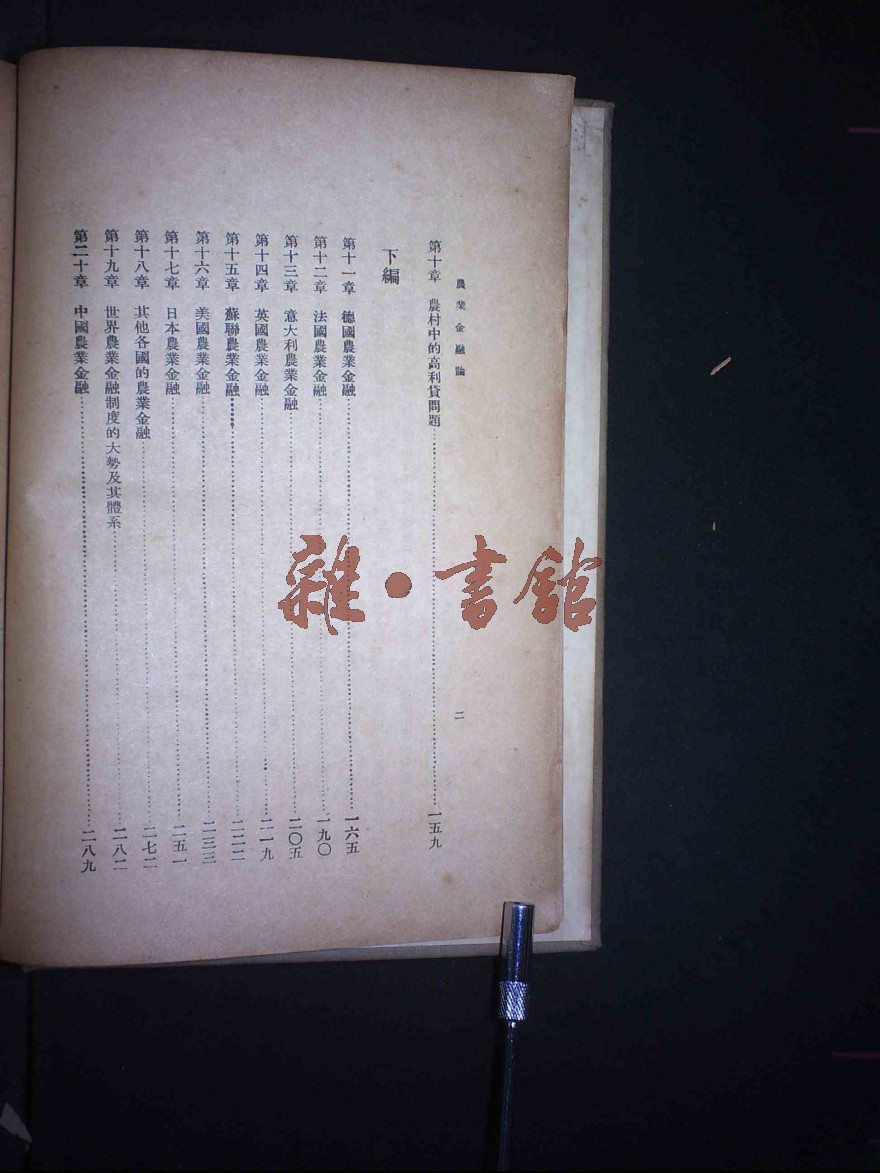 農業金融論
二
第十章 農村中的高利貸問題……一五九
下編
第十一章 德國農業金融……一六五
第十二章 法國農業金融……一九〇
第十三章 意大利農業金融……二〇五
第十四章 英國農業金融……二一九
第十五章 蘇聯農業金融……二二二
第十六章 美國農業金融……二三三
第十七章 日本農業金融……二五一
第十八章 其他各國的農業金融……二七二
第十九章 世界農業金融制度的大勢及其體系……二八二
第二十章 中國農業金融……二八九
雜·書館